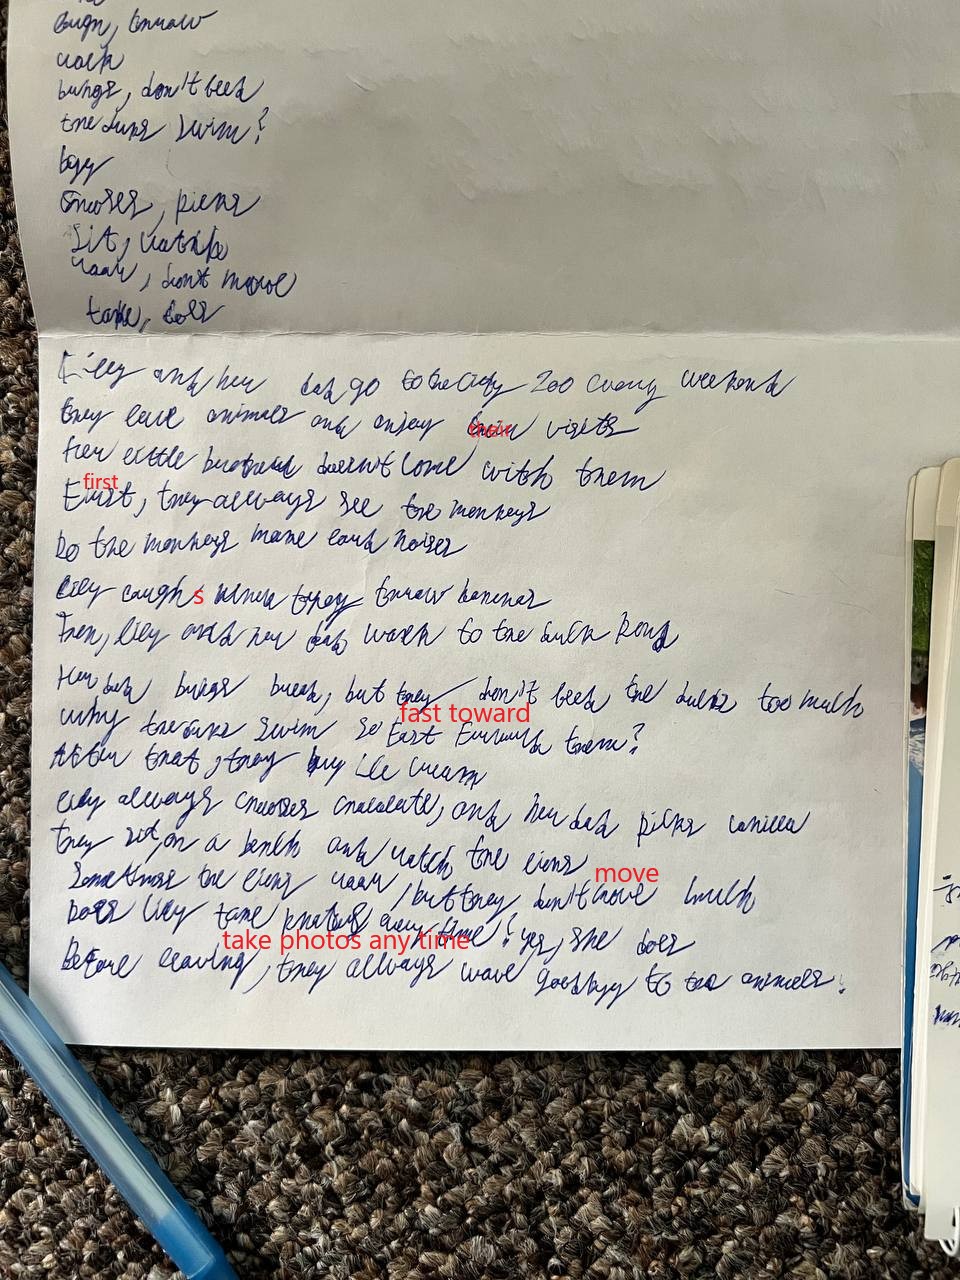 laugh, throw
walk
brings, don't feed
the ducks swim?
buy
chooses, picks
sit, watch
roar, don't move
take, does
Lily and her dad go to the city zoo every weekend
they love animals and enjoy their visits
Her little brother doesn't come with them
first
First, they always see the monkeys
Do the monkeys make loud noises
Lily laughs when they throw bananas
Then, lily and her dad walk to the duck pond
Her dad brings bread, but they don't feed the ducks too much
fast toward
why the ducks swim so fast toward them?
After that, they buy ice cream
lily always chooses chocolate, and her dad picks vanilla
they sit on a bench and watch the lions
move
Sometimes the lions roar, but they don't move much
Does lily take photos any time? yes, she does
take photos any time
Before leaving, they always wave goodbye to the animals.